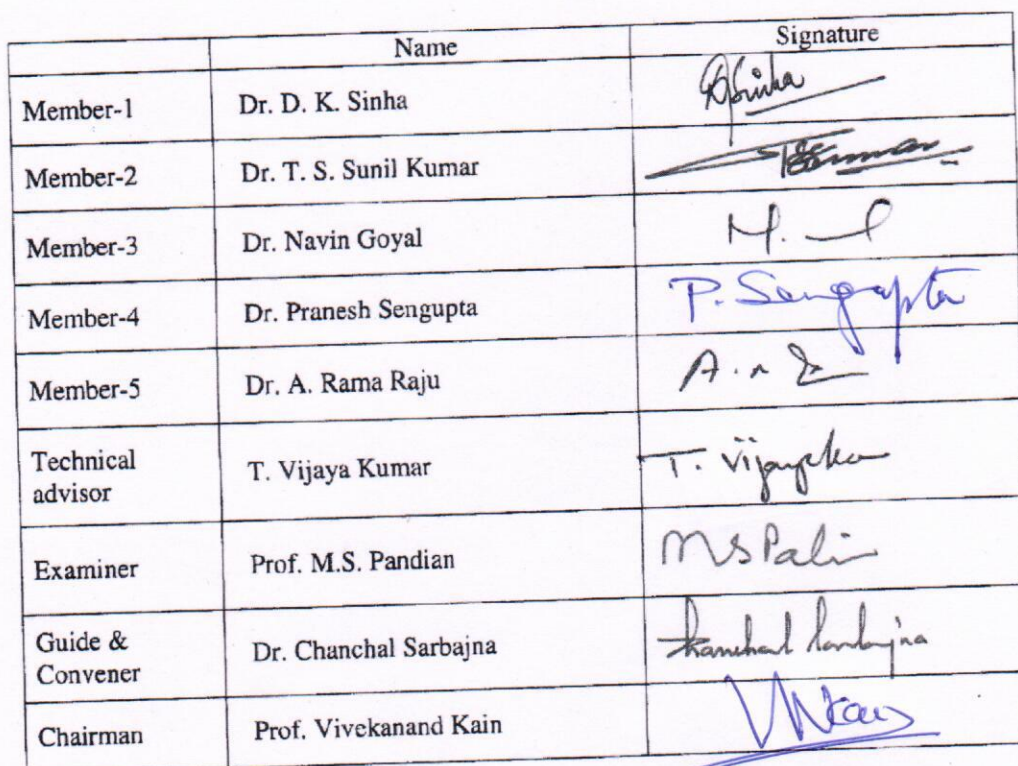 Name Signature
Member-1 Dr. D. K. Sinha DSinha
Member-2 Dr. T. S. Sunil Kumar
Member-3 Dr. Navin Goyal
Member-4 Dr. Pranesh Sengupta P. Sengupta
Member-5 Dr. A. Rama Raju
Technical
advisor T. Vijaya Kumar T.
Examiner Prof. M.S. Pandian
Guide &
Convener Dr. Chanchal Sarbajna Chanchal Sarbajna
Chairman Prof. Vivekanand Kain